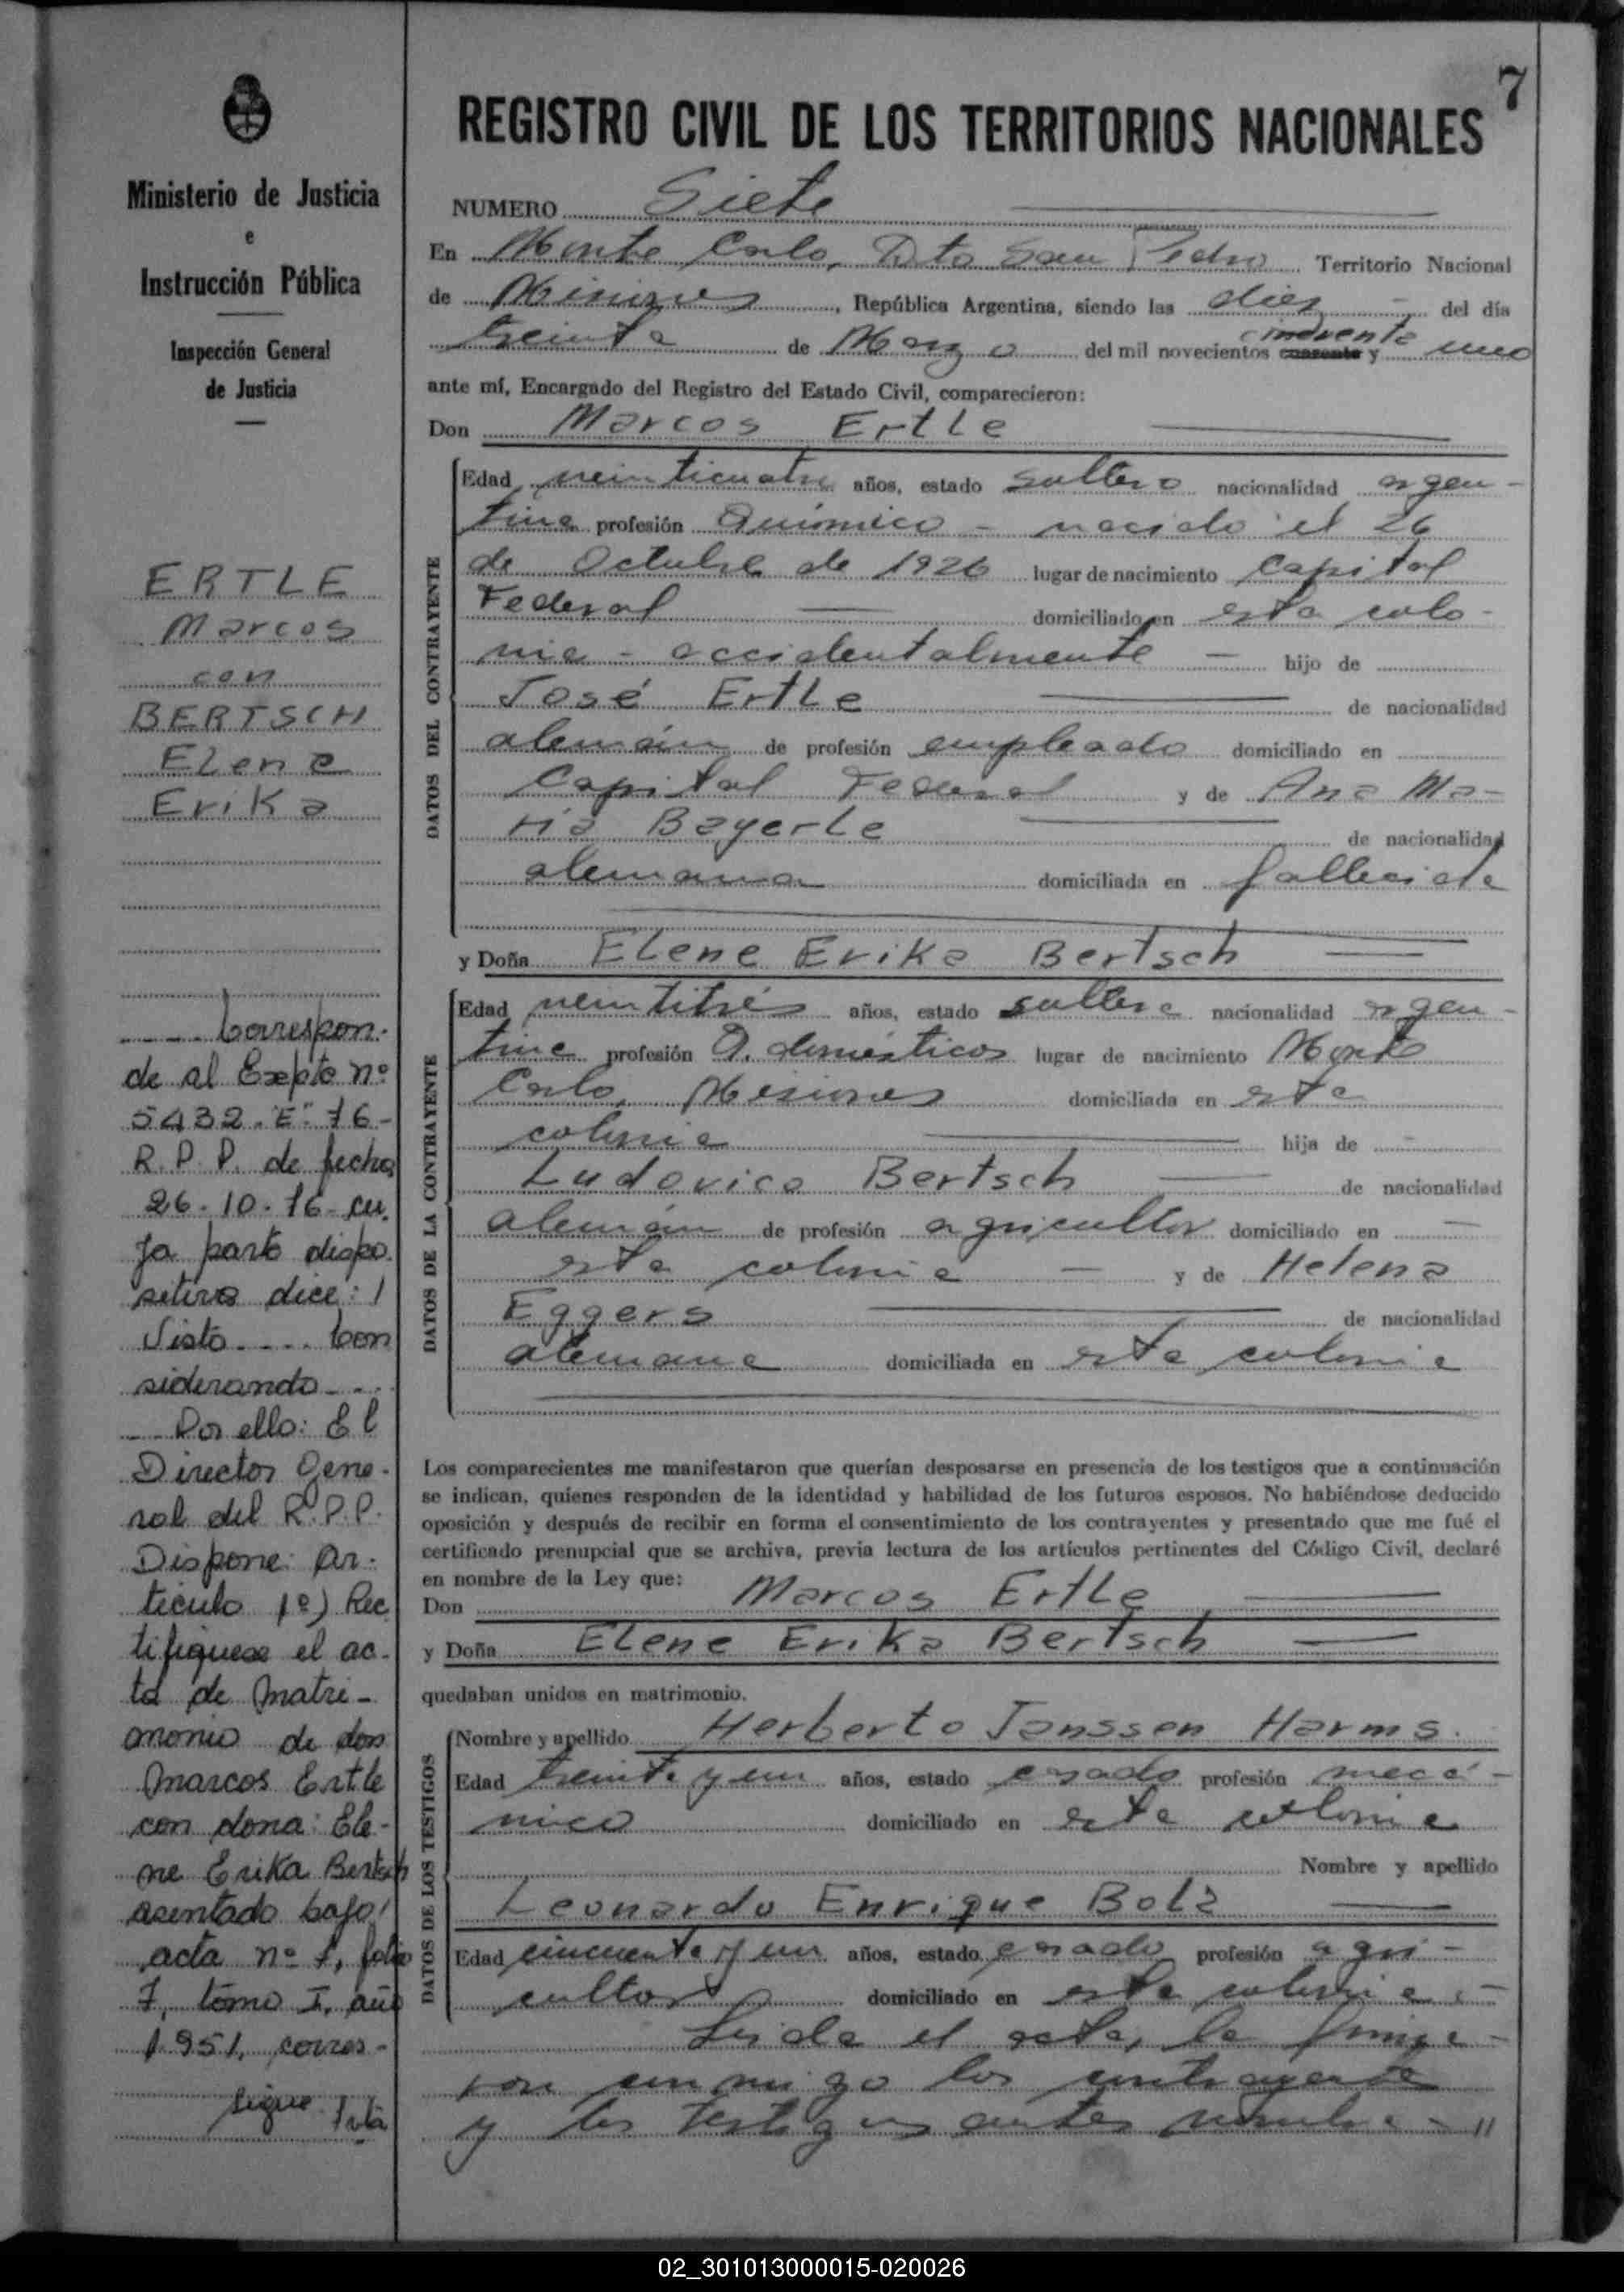 7
REGISTRO CIVIL DE LOS TERRITORIOS NACIONALES
Ministerio de Justicia
e
Instrucción Pública
Inspección General
de Justicia
NUMERO Siete
En Monte Carlo, Dto San Pedro Territorio Nacional
de Misiones, República Argentina, siendo las diez del día
treinta de Marzo del mil novecientos cincuenta y uno
ante mí, Encargado del Registro del Estado Civil, comparecieron:
Don Marcos Ertle
DATOS DEL CONTRAYENTE
Edad veinticuatro años, estado soltero nacionalidad argen-
tina profesión Químico - nacido el 26
de Octubre de 1926 lugar de nacimiento Capital
Federal domiciliado en esta colo-
nia - accidentalmente - hijo de
José Ertle de nacionalidad
alemán de profesión empleado domiciliado en
Capital Federal y de Ana Ma-
ria Bayerle de nacionalidad
alemana domiciliada en fallecida
y Doña Elene Erika Bertsch
DATOS DE LA CONTRAYENTE
Edad veintitrés años, estado soltera nacionalidad argen-
tina profesión Q. domésticos lugar de nacimiento Monte
Carlo, Misiones domiciliada en esta
colonia hija de
Ludovico Bertsch de nacionalidad
alemán de profesión agricultor domiciliado en
esta colonia - y de Helena
Eggers de nacionalidad
alemana domiciliada en esta colonia
Los comparecientes me manifestaron que querían desposarse en presencia de los testigos que a continuación
se indican, quienes responden de la identidad y habilidad de los futuros esposos. No habiéndose deducido
oposición y después de recibir en forma el consentimiento de los contrayentes y presentado que me fué el
certificado prenupcial que se archiva, previa lectura de los artículos pertinentes del Código Civil, declaré
en nombre de la Ley que:
Don Marcos Ertle
y Doña Elene Erika Bertsch
quedaban unidos en matrimonio.
DATOS DE LOS TESTIGOS
Nombre y apellido Herberto Janssen Harms.
Edad treinta y un años, estado casado profesión mecá-
nico domiciliado en esta colonia
Nombre y apellido
Leonardo Enrique Bolz
Edad cincuenta y un años, estado casado profesión agri-
cultor domiciliado en esta colonia.-
Leida el acta, la firma-
ron conmigo los contrayentes
y los testigos antes nombra- "
ERTLE
Marcos
con
BERTSCH
Elene
Erika
Correspon-
de al Expte nº
5432."E".76-
R.P.P. de fecha
26-10-76- cu-
ya parte dispo-
sitiva dice: /
Visto.... Con
siderando...
Por ello: El
Director Gene-
ral del R.P.P.
Dispone: Ar-
tículo 1º) Rec
tifiquese el ac-
ta de Matri-
monio de don
Marcos Ertle
con dona: Ele-
ne Erika Bertsch
asentado bajo/
acta nº 7, folio
7, tomo I, año
1951, corres-
sigue
02_301013000015-020026